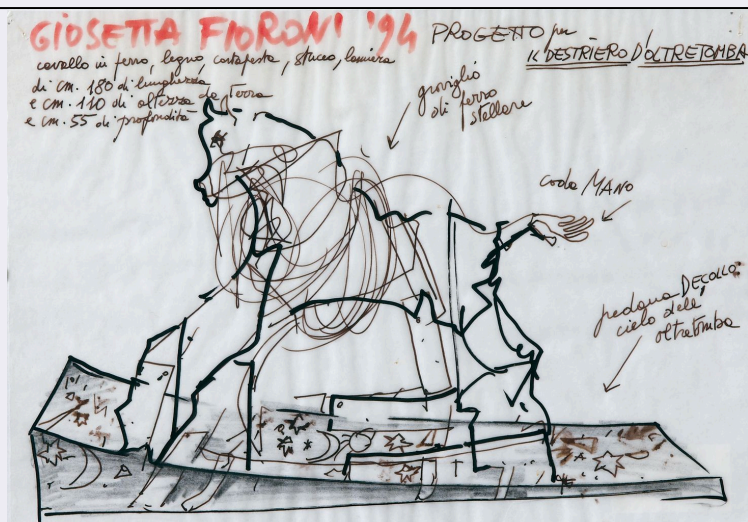 GIOSETTA FIORONI '94 PROGETTO per
IL DESTRIERO D'OLTRETOMBA
cavallo in ferro, legno, cartapesta, stucco, lamiera
di cm. 180 di lunghezza
e cm. 110 di altezza da terra
e cm. 55 di profondità
groviglio
di ferro
stellare
coda MANO
pedana DECOLLO:
cielo dell'
oltretomba